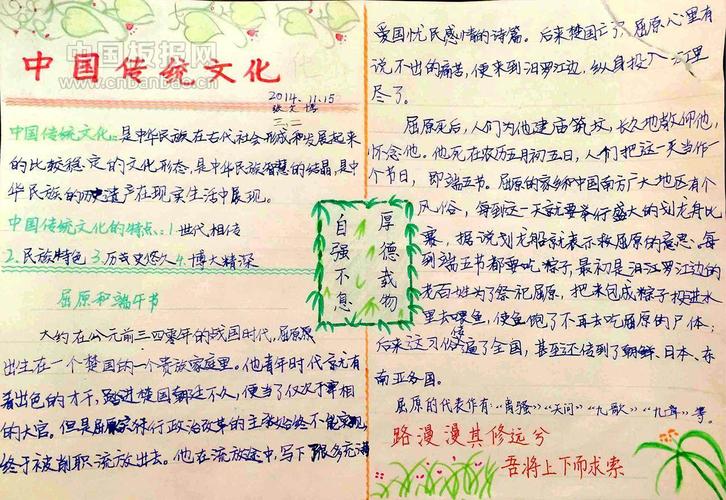 中国板报网
www.cnbanbao.cn
中国传统文化
2014.11.15
三、二
中国传统文化:是中华民族在古代社会形成和发展起来
的比较稳定的文化形态,是中华民族智慧的结晶,是中
华民族的历史遗产在现实生活中展现。
中国传统文化的特点:1.世代相传
2.民族特色 3.历史悠久 4.博大精深
屈原和端午节
大约在公元前三四零年的战国时代,屈原
出生在一个楚国的一个贵族家庭里。他青年时代就有
着出色的才干,踏进楚国朝廷不久,便当了仅次于宰相
的大官。但是屈原实行政治改革的主张始终不能实现
终于被削职流放出去。他在流放途中,写下了很多充满
自强不息
厚德载物
爱国忧民感情的诗篇。后来楚国亡了,屈原心里有
说不出的痛苦,便来到汨罗江边,纵身投入江里
尽了。
屈原死后,人们为他建庙筑坟,长久地敬仰他,
怀念他。他死在农历五月初五日,人们把这一天当作一
个节日,即端五节。屈原的家乡和中国南方广大地区有个
风俗,每到这一天就要举行盛大的划龙舟比
赛,据说划龙船就表示救屈原的意思。每
到端五节都要吃粽子,最初是汨江罗江边的
老百姓为了祭祀屈原,把米包成粽子投进水
里去喂鱼,使鱼饱了不再去吃屈原的尸体;
后来这习俗传遍了全国,甚至还传到了朝鲜、日本、东
南亚各国。
屈原的代表作有:“离骚”“天问”“九歌”“九章”等。
路漫漫其修远兮
吾将上下而求索